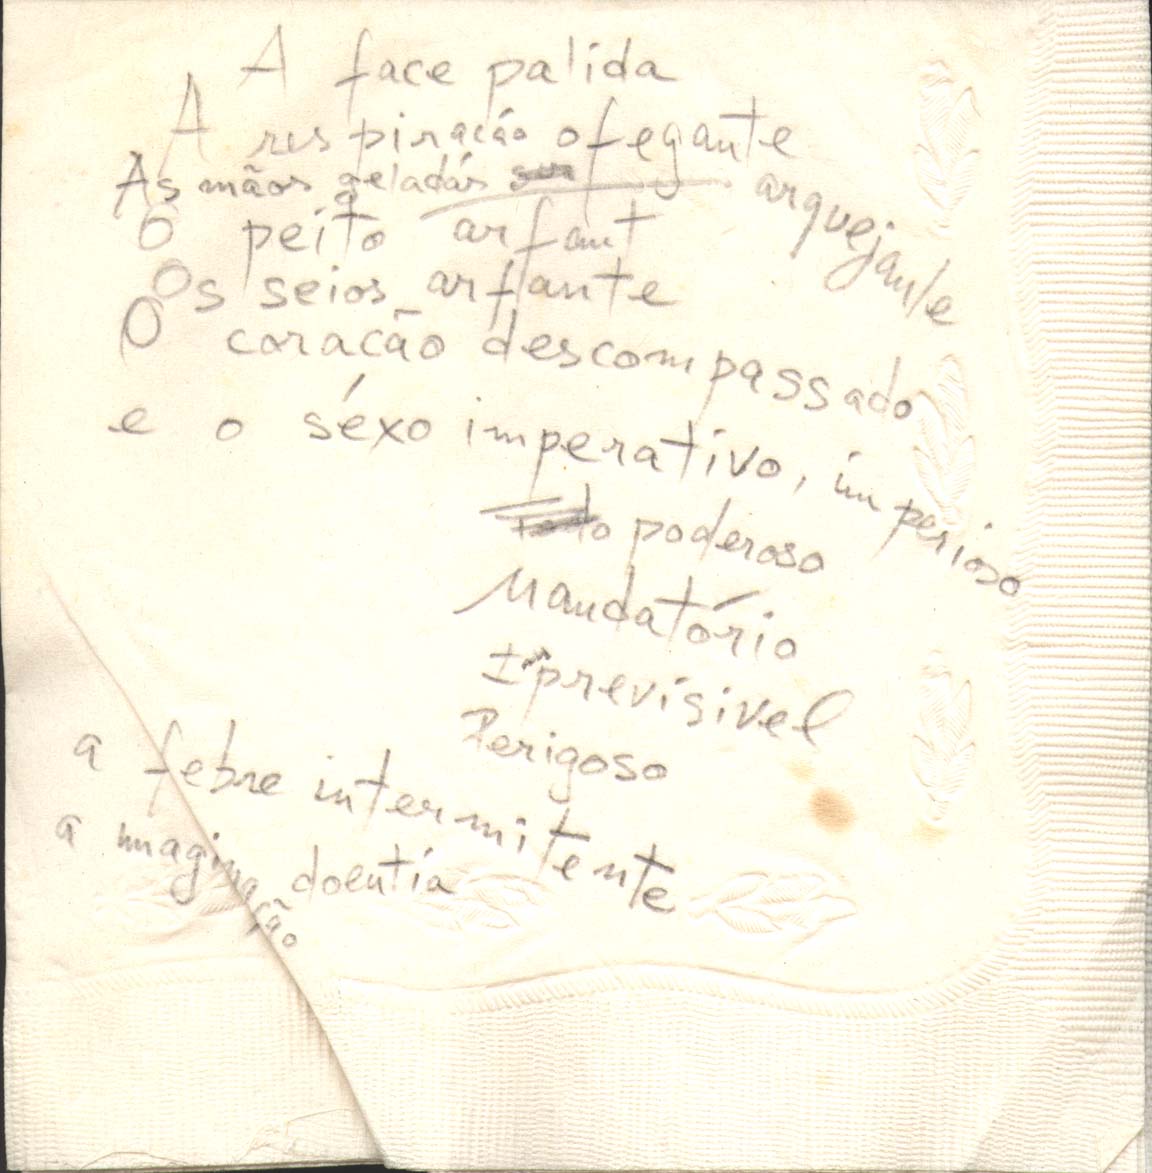 A face palida
A respiração ofegante
As mãos geladas arquejante
O peito arfant
Os seios arfante
O coração descompassado
e o séxo imperativo, imperioso
Todo poderoso
Mandatório
Imprevisivel
Perigoso
a febre intermitente
a imaginação doentia